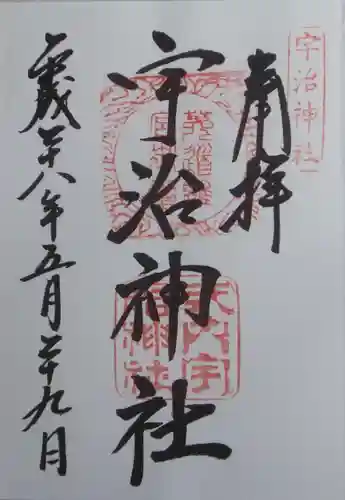 宇治神社
奉拝
宇治神社
平成二十八年五月二十九日